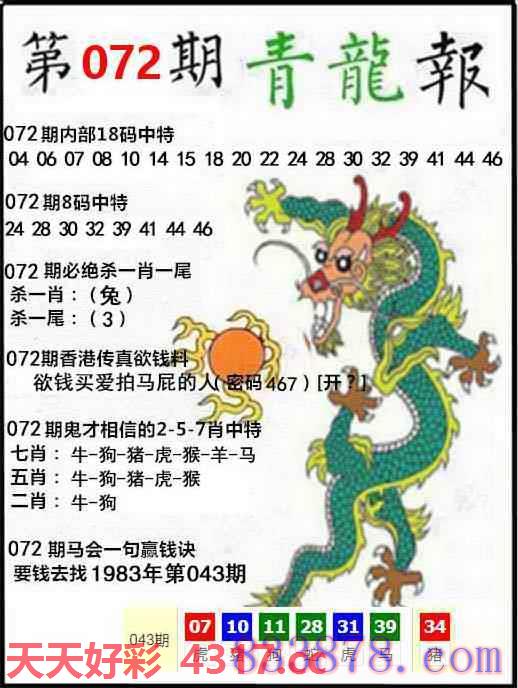 第072期 青龍報
072期内部18码中特
04 06 07 08 10 14 15 18 20 22 24 28 30 32 39 41 44 46
072期8码中特
24 28 30 32 39 41 44 46
072期必绝杀一肖一尾
杀一肖：(兔)
杀一尾：(3)
072期香港传真欲钱料
欲钱买爱拍马屁的人(密码467)[开?]
072期鬼才相信的2-5-7肖中特
七肖：牛-狗-猪-虎-猴-羊-马
五肖：牛-狗-猪-虎-猴
二肖：牛-狗
072期马会一句赢钱诀
要钱去找1983年第043期
043期 07 10 11 28 31 39 34
虎 狗 蛇 虎 马 猪
天天好彩